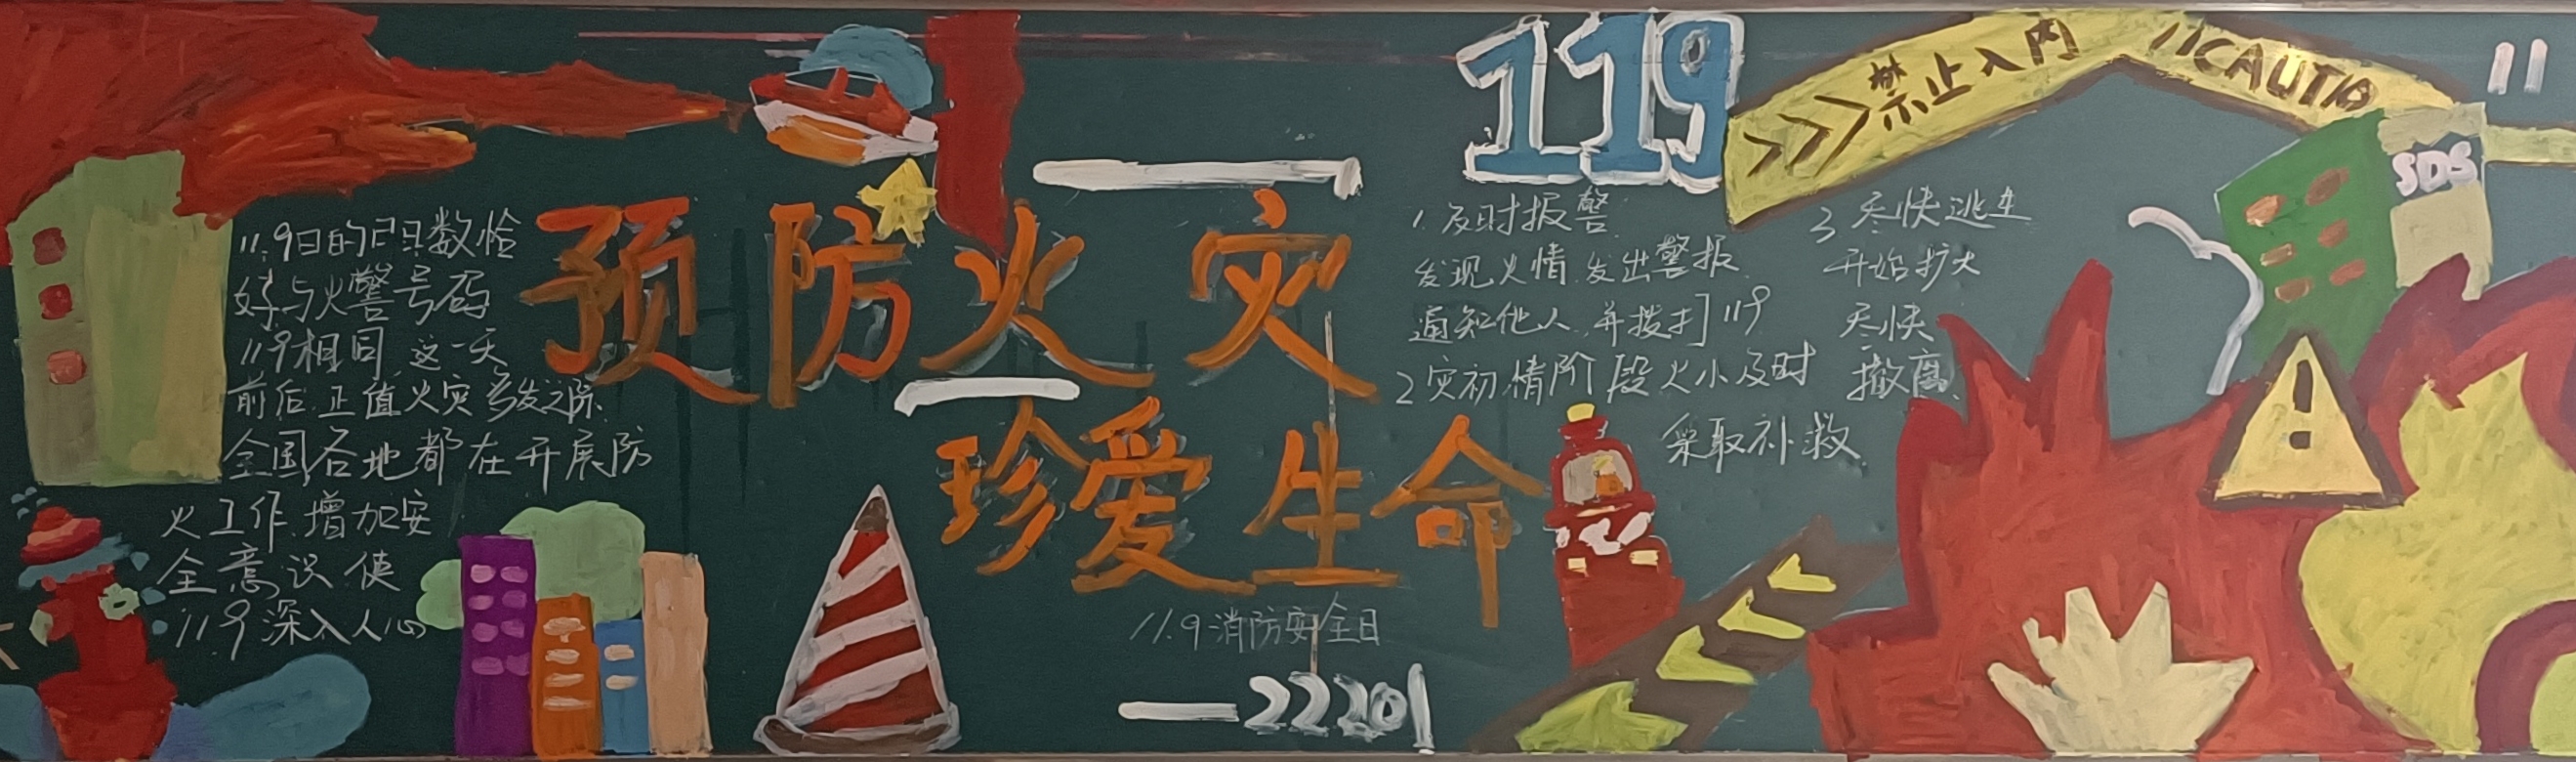 11.9日的日只数恰
好与火警号码
119相同 这一天
前后.正值火灾多发之际.
全国各地都在开展防
火工作.增加安
全意识.使
11.9深入人心
预防火灾
珍爱生命
11.9消防安全日
22201
119
1.及时报警.
发现火情.发出警报.
通知他人.并拨打119
2灾初情阶段火小及时
采取补救.
3.尽快逃生
开始扩火
尽快
撤离.
>>>禁止入内 //CAUTIO
SDS
!